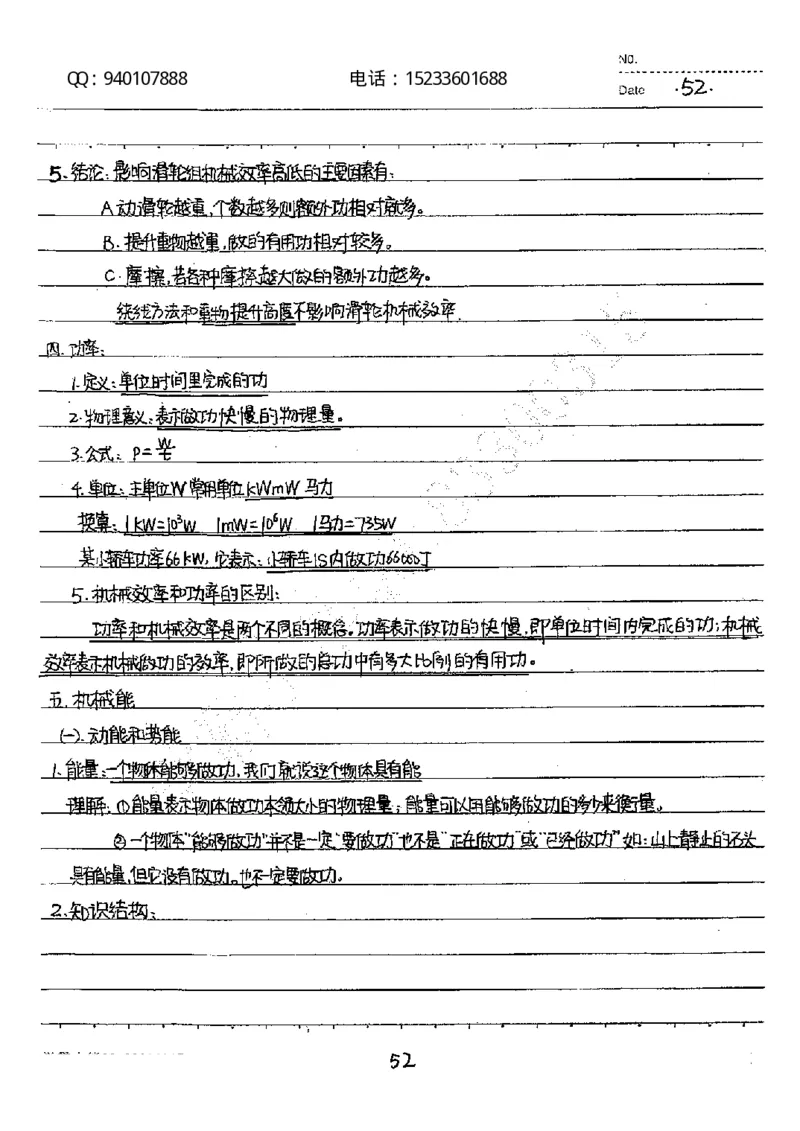 QQ：940107888 电话：15233601688
NO.
Date ·52·
5、结论：影响滑轮组机械效率高低的主要因素有：
A 动滑轮越重，个数越多则额外功相对就多。
B. 提升重物越重，做的有用功相对较多。
C. 摩擦，若各种摩擦越大做的额外功越多。
绕线方法和重物提升高度不影响滑轮机械效率.
四. 功率：
1. 定义：单位时间里完成的功
2. 物理意义：表示做功快慢的物理量。
3. 公式：P=W/t
4. 单位：主单位W 常用单位kW mW 马力
换算：1kW=10³W 1mW=10⁶W 1马力=735W
某小轿车功率66kW，它表示：小轿车1S内做功66000J
5. 机械效率和功率的区别：
功率和机械效率是两个不同的概念。功率表示做功的快慢，即单位时间内完成的功；机械
效率表示机械做功的效率，即所做的总功中有多大比例的有用功。
五. 机械能
(一). 动能和势能
1. 能量：一个物体能够做功，我们就说这个物体具有能
理解：①能量表示物体做功本领大小的物理量；能量可以用能够做功的多少来衡量。
②一个物体"能够做功"并不是一定"要做功"也不是"正在做功"或"已经做功"如：山上静止的石头
具有能量，但它没有做功。也不一定要做功。
2. 知识结构：
52